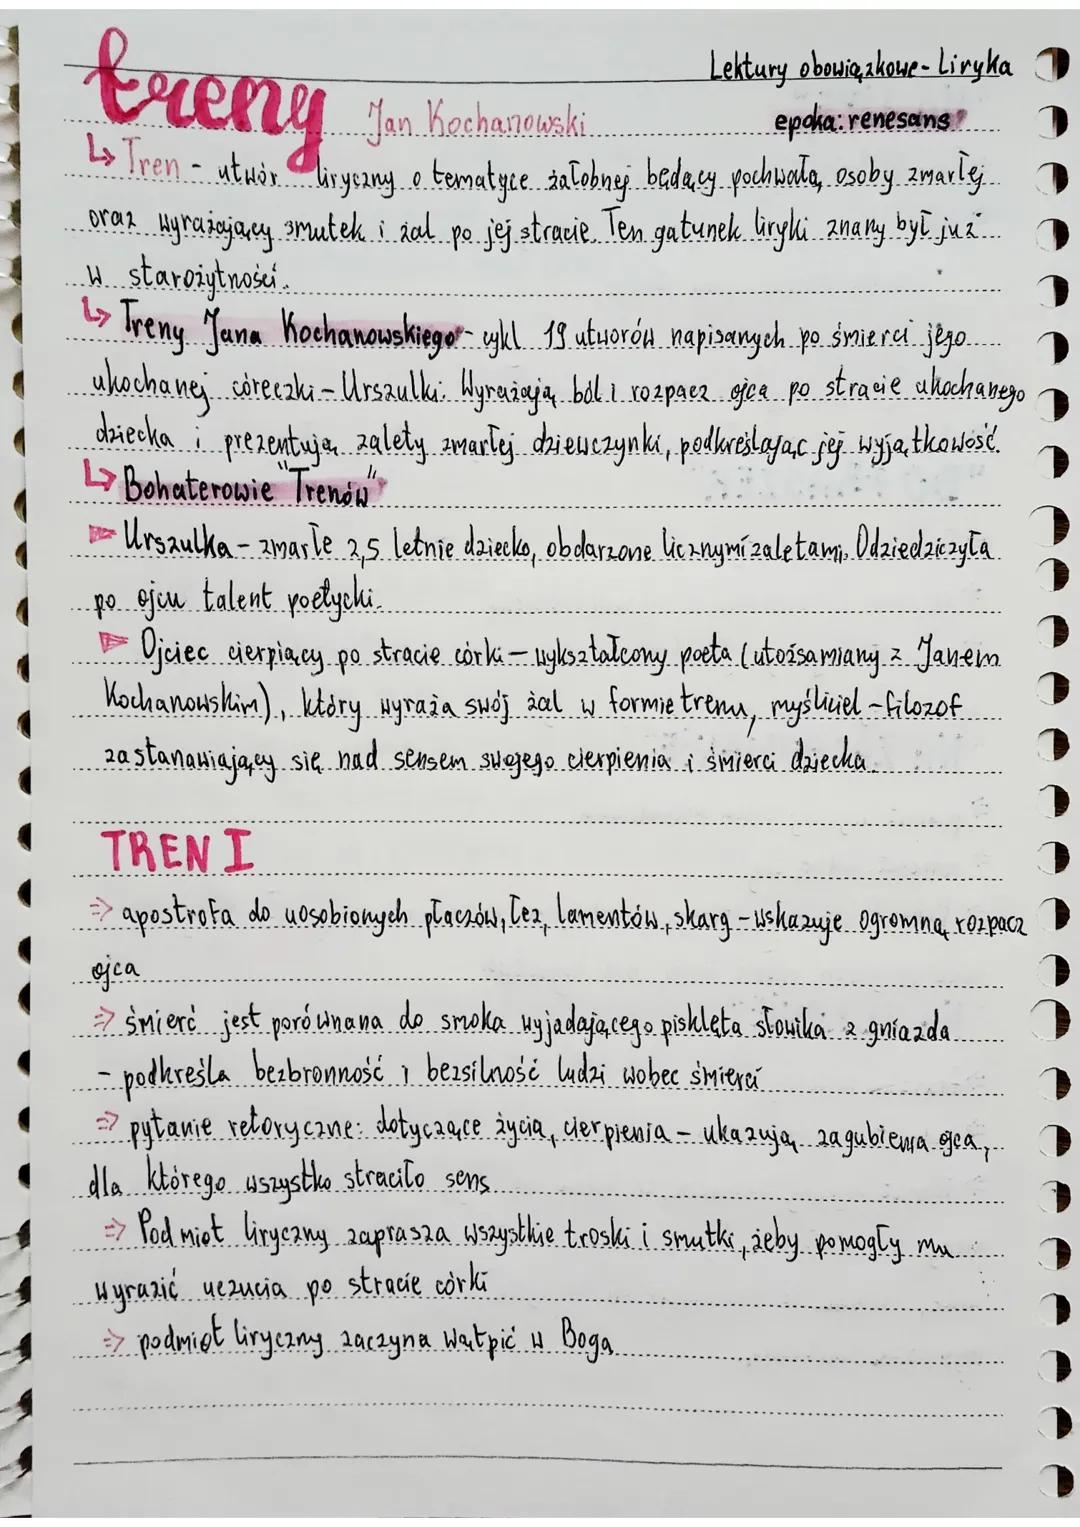 Lektury obowiązkowe - Liryka
treny Jan Kochanowski epoka: renesans
↳ Tren - utwór liryczny o tematyce żałobnej będący pochwałą osoby zmarłej
oraz wyrażający smutek i żal po jej stracie. Ten gatunek liryki znany był już
w starożytności.
↳ Treny Jana Kochanowskiego - cykl 19 utworów napisanych po śmierci jego
ukochanej córeczki - Urszulki. Wyrażają ból i rozpacz ojca po stracie ukochanego
dziecka i prezentują zalety zmarłej dziewczynki, podkreślając jej wyjątkowość.
↳ Bohaterowie "Trenów"
▷ Urszulka - zmarłe 2,5 letnie dziecko, obdarzone licznymi zaletami. Odziedziczyła
po ojcu talent poetycki.
▷ Ojciec cierpiący po stracie córki - wykształcony poeta (utożsamiany z Janem
Kochanowskim), który wyraża swój żal w formie trenu, myśliciel - filozof
zastanawiający się nad sensem swojego cierpienia i śmierci dziecka.
TREN I
⇒ apostrofa do uosobionych płaczów, łez, lamentów, skarg - wskazuje ogromną rozpacz
ojca
⇒ śmierć jest porównana do smoka wyjadającego pisklęta słowika z gniazda
- podkreśla bezbronność i bezsilność ludzi wobec śmierci
⇒ pytanie retoryczne: dotyczące życia, cierpienia - ukazują zagubienia ojca,
dla którego wszystko straciło sens
⇒ Podmiot liryczny zaprasza wszystkie troski i smutki, żeby pomogły mu
wyrazić uczucia po stracie córki
⇒ podmiot liryczny zaczyna wątpić w Boga